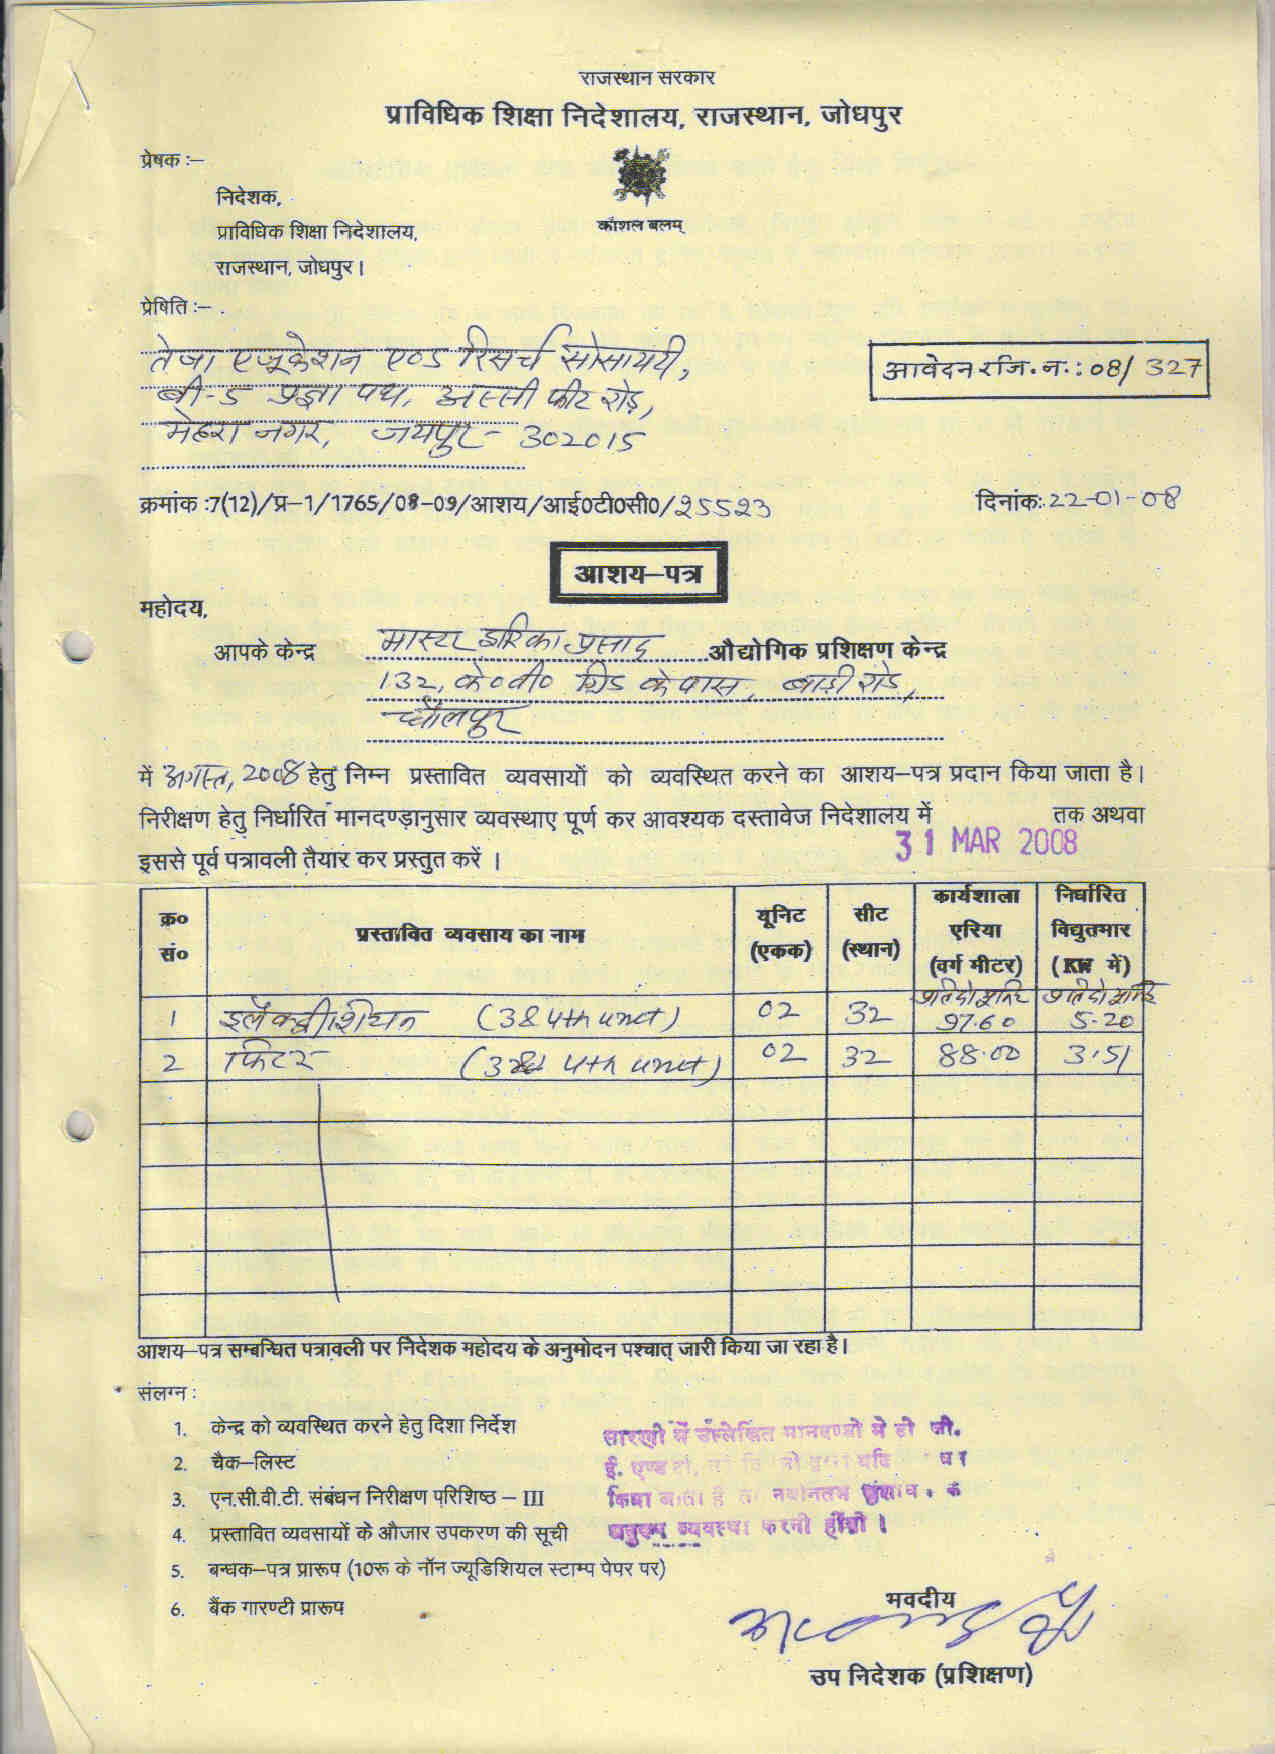 राजस्थान सरकार
प्राविधिक शिक्षा निदेशालय, राजस्थान, जोधपुर
प्रेषक :–
कौशल बलम्
निदेशक,
प्राविधिक शिक्षा निदेशालय,
राजस्थान, जोधपुर।
प्रेषिति :–
तेजा एजूकेशन एण्ड रिसर्च सोसायटी,
बी-5 प्रज्ञा पथ, अस्सी फीट रोड़,
मेहरा नगर, जयपुर - 302015
आवेदन रजि. न. : 08/ 327
क्रमांक :7(12)/प्र–1/1765/08-09/आशय/आई0टी0सी0/25523
दिनांक: 22-01-08
आशय–पत्र
महोदय,
आपके केन्द्र मास्टर द्वारिका प्रसाद औद्योगिक प्रशिक्षण केन्द्र
132, के0वी0 ग्रिड के पास, बाड़ी रोड,
धौलपुर
में अगस्त, 2008 हेतु निम्न प्रस्तावित व्यवसायों को व्यवस्थित करने का आशय–पत्र प्रदान किया जाता है।
निरीक्षण हेतु निर्धारित मानदण्ड़ानुसार व्यवस्थाए पूर्ण कर आवश्यक दस्तावेज निदेशालय में 31 MAR 2008 तक अथवा
इससे पूर्व पत्रावली तैयार कर प्रस्तुत करें ।
क्र० सं० प्रस्तावित व्यवसाय का नाम यूनिट (एकक) सीट (स्थान) कार्यशाला एरिया (वर्ग मीटर) निर्धारित विद्युतभार (KW में)
1 इलैक्ट्रीशियन (3 & 4th unit) 02 32 97.60 5.20
2 फिटर (3 & 4th unit) 02 32 88.00 3.51
आशय–पत्र सम्बन्धित पत्रावली पर निदेशक महोदय के अनुमोदन पश्चात् जारी किया जा रहा है।
संलग्न :
1. केन्द्र को व्यवस्थित करने हेतु दिशा निर्देश
2. चैक–लिस्ट
3. एन.सी.वी.टी. संबंधन निरीक्षण परिशिष्ठ – III
4. प्रस्तावित व्यवसायों के औजार उपकरण की सूची
5. बन्धक–पत्र प्रारूप (10रू के नॉन ज्यूडिशियल स्टाम्प पेपर पर)
6. बैंक गारण्टी प्रारूप
सारणी में उल्लेखित मानदण्डो मे डी जी.
ई. एण्ड टी,
व्यवस्था करनी होगी ।
भवदीय
उप निदेशक (प्रशिक्षण)